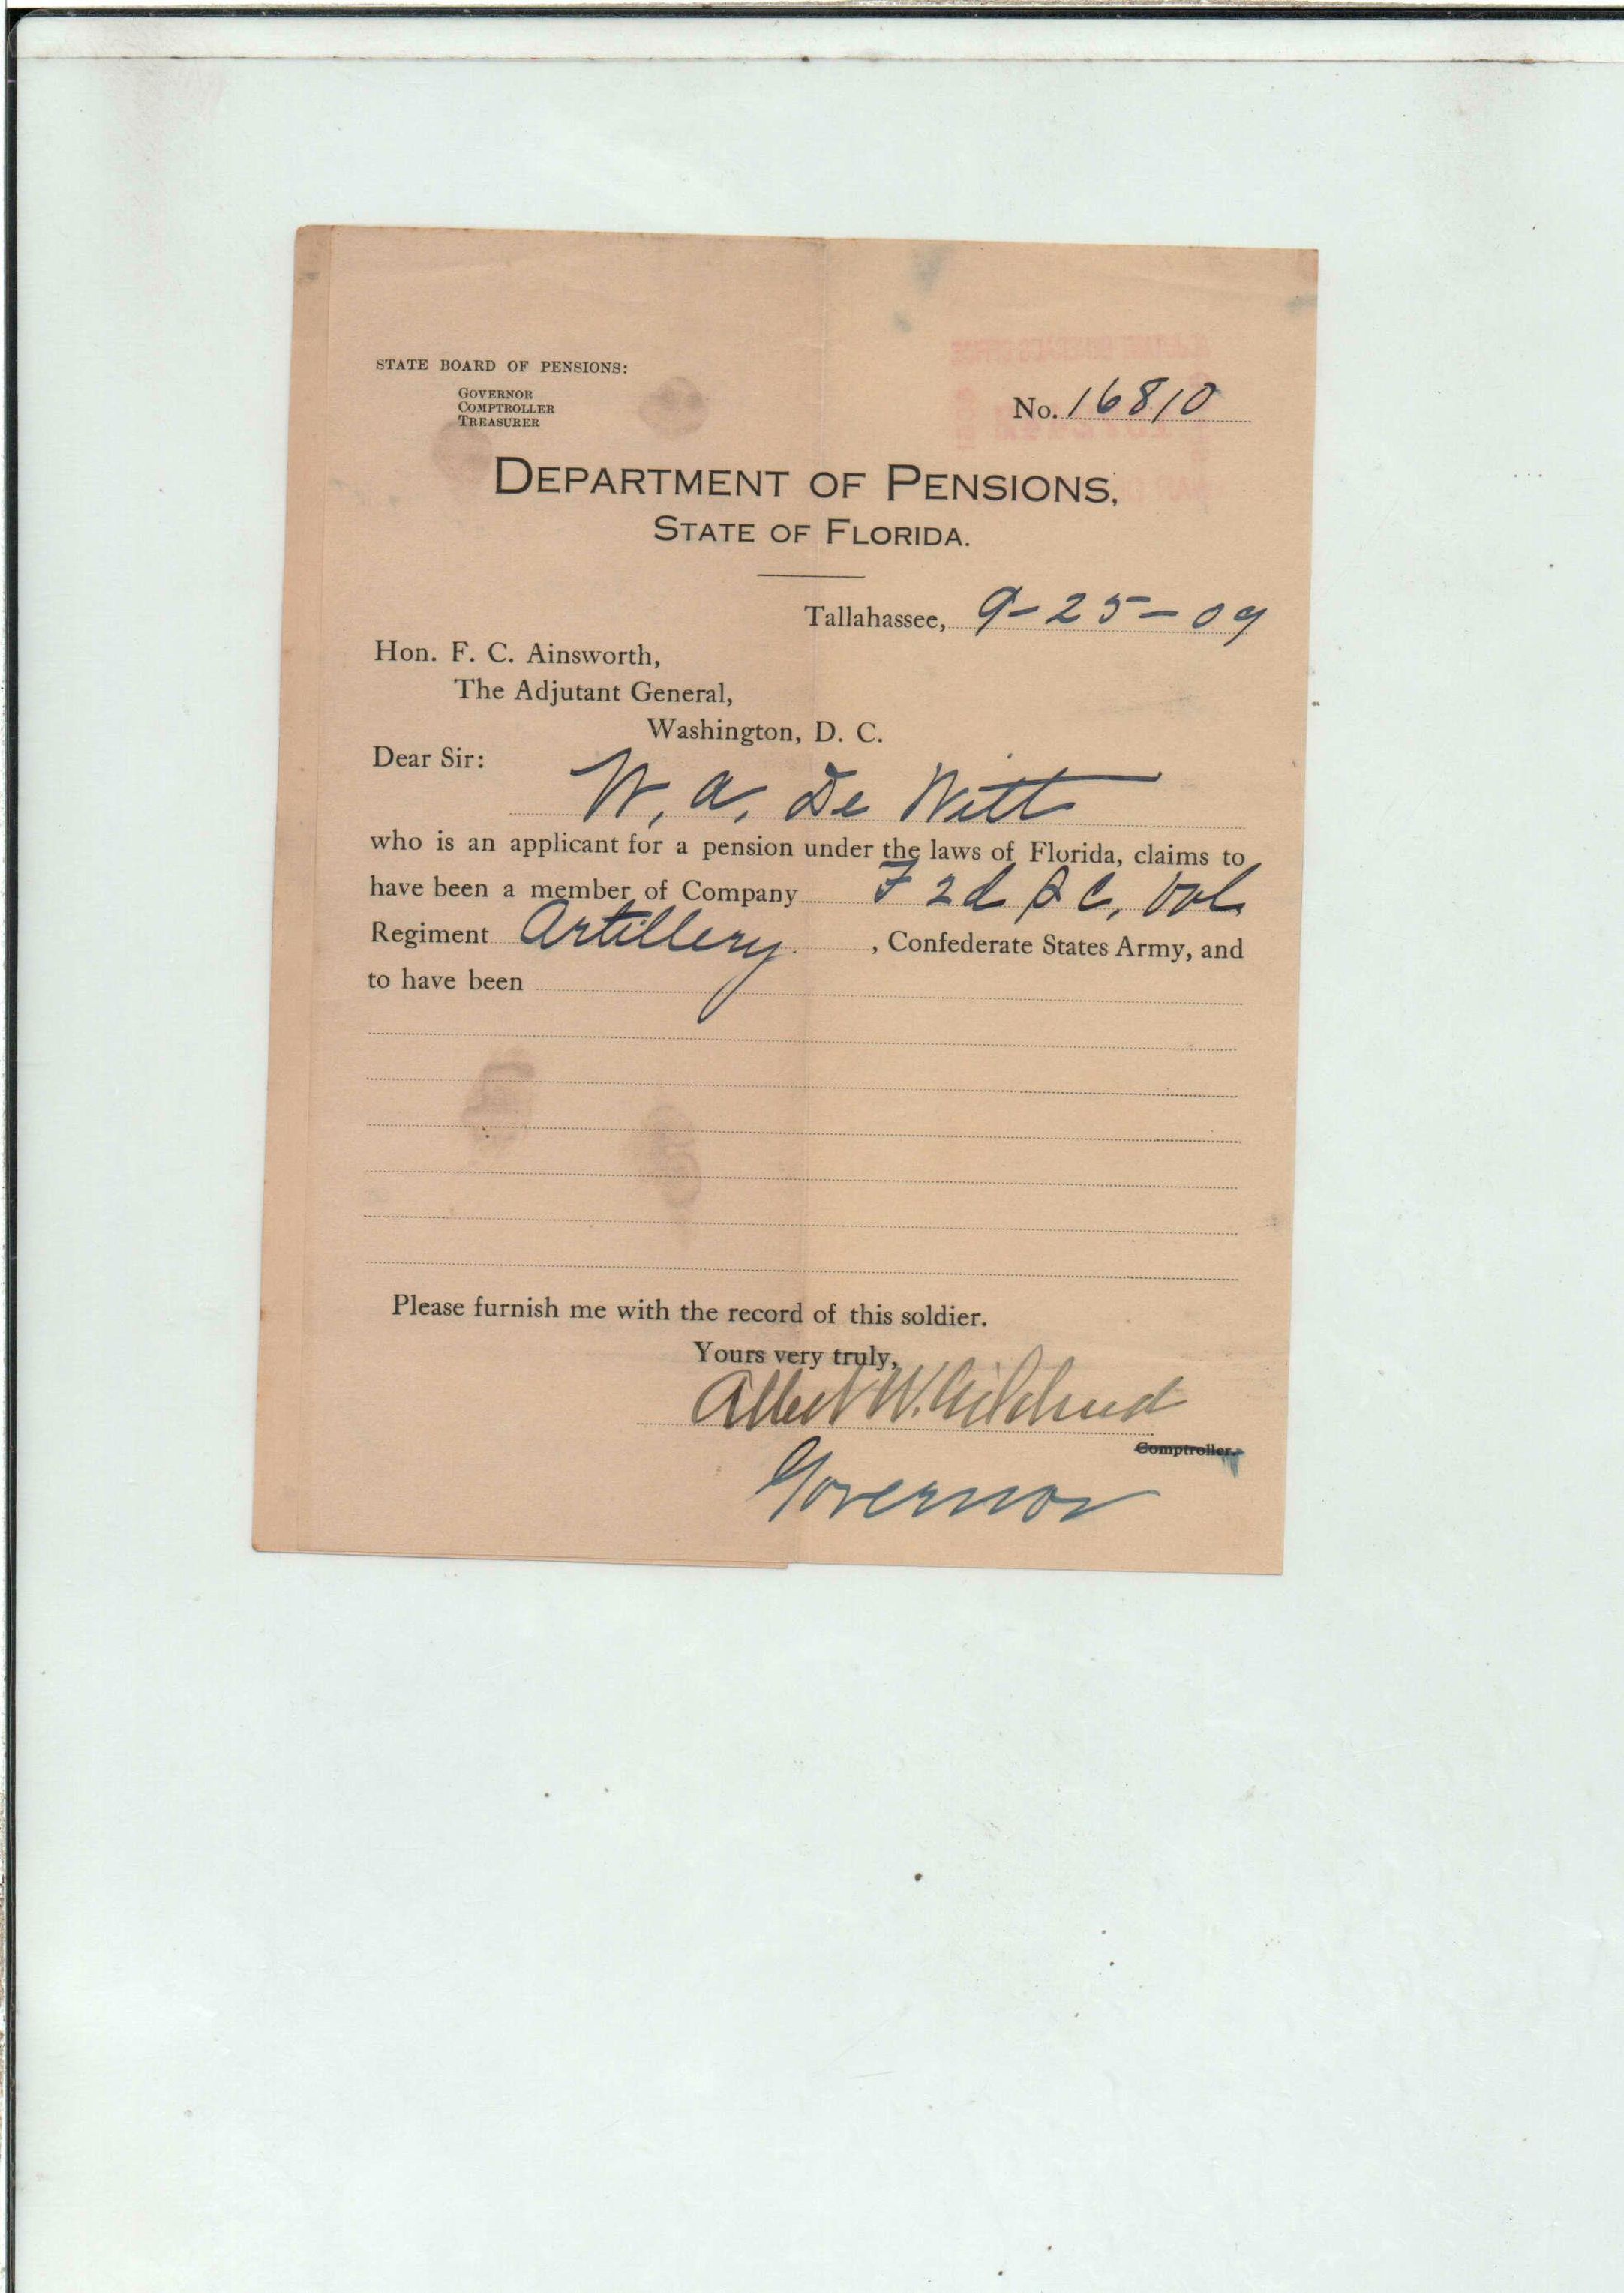 STATE BOARD OF PENSIONS:
GOVERNOR
COMPTROLLER
TREASURER
No. 16810
DEPARTMENT OF PENSIONS,
STATE OF FLORIDA.
Tallahassee, 9-25-09
Hon. F. C. Ainsworth,
The Adjutant General,
Washington, D. C.
Dear Sir:
W. A. De Witt
who is an applicant for a pension under the laws of Florida, claims to
have been a member of Company F 2d S C, Vol
Regiment Artillery , Confederate States Army, and
to have been
Please furnish me with the record of this soldier.
Yours very truly,
Albert W. Gilchrist
Comptroller.
Governor